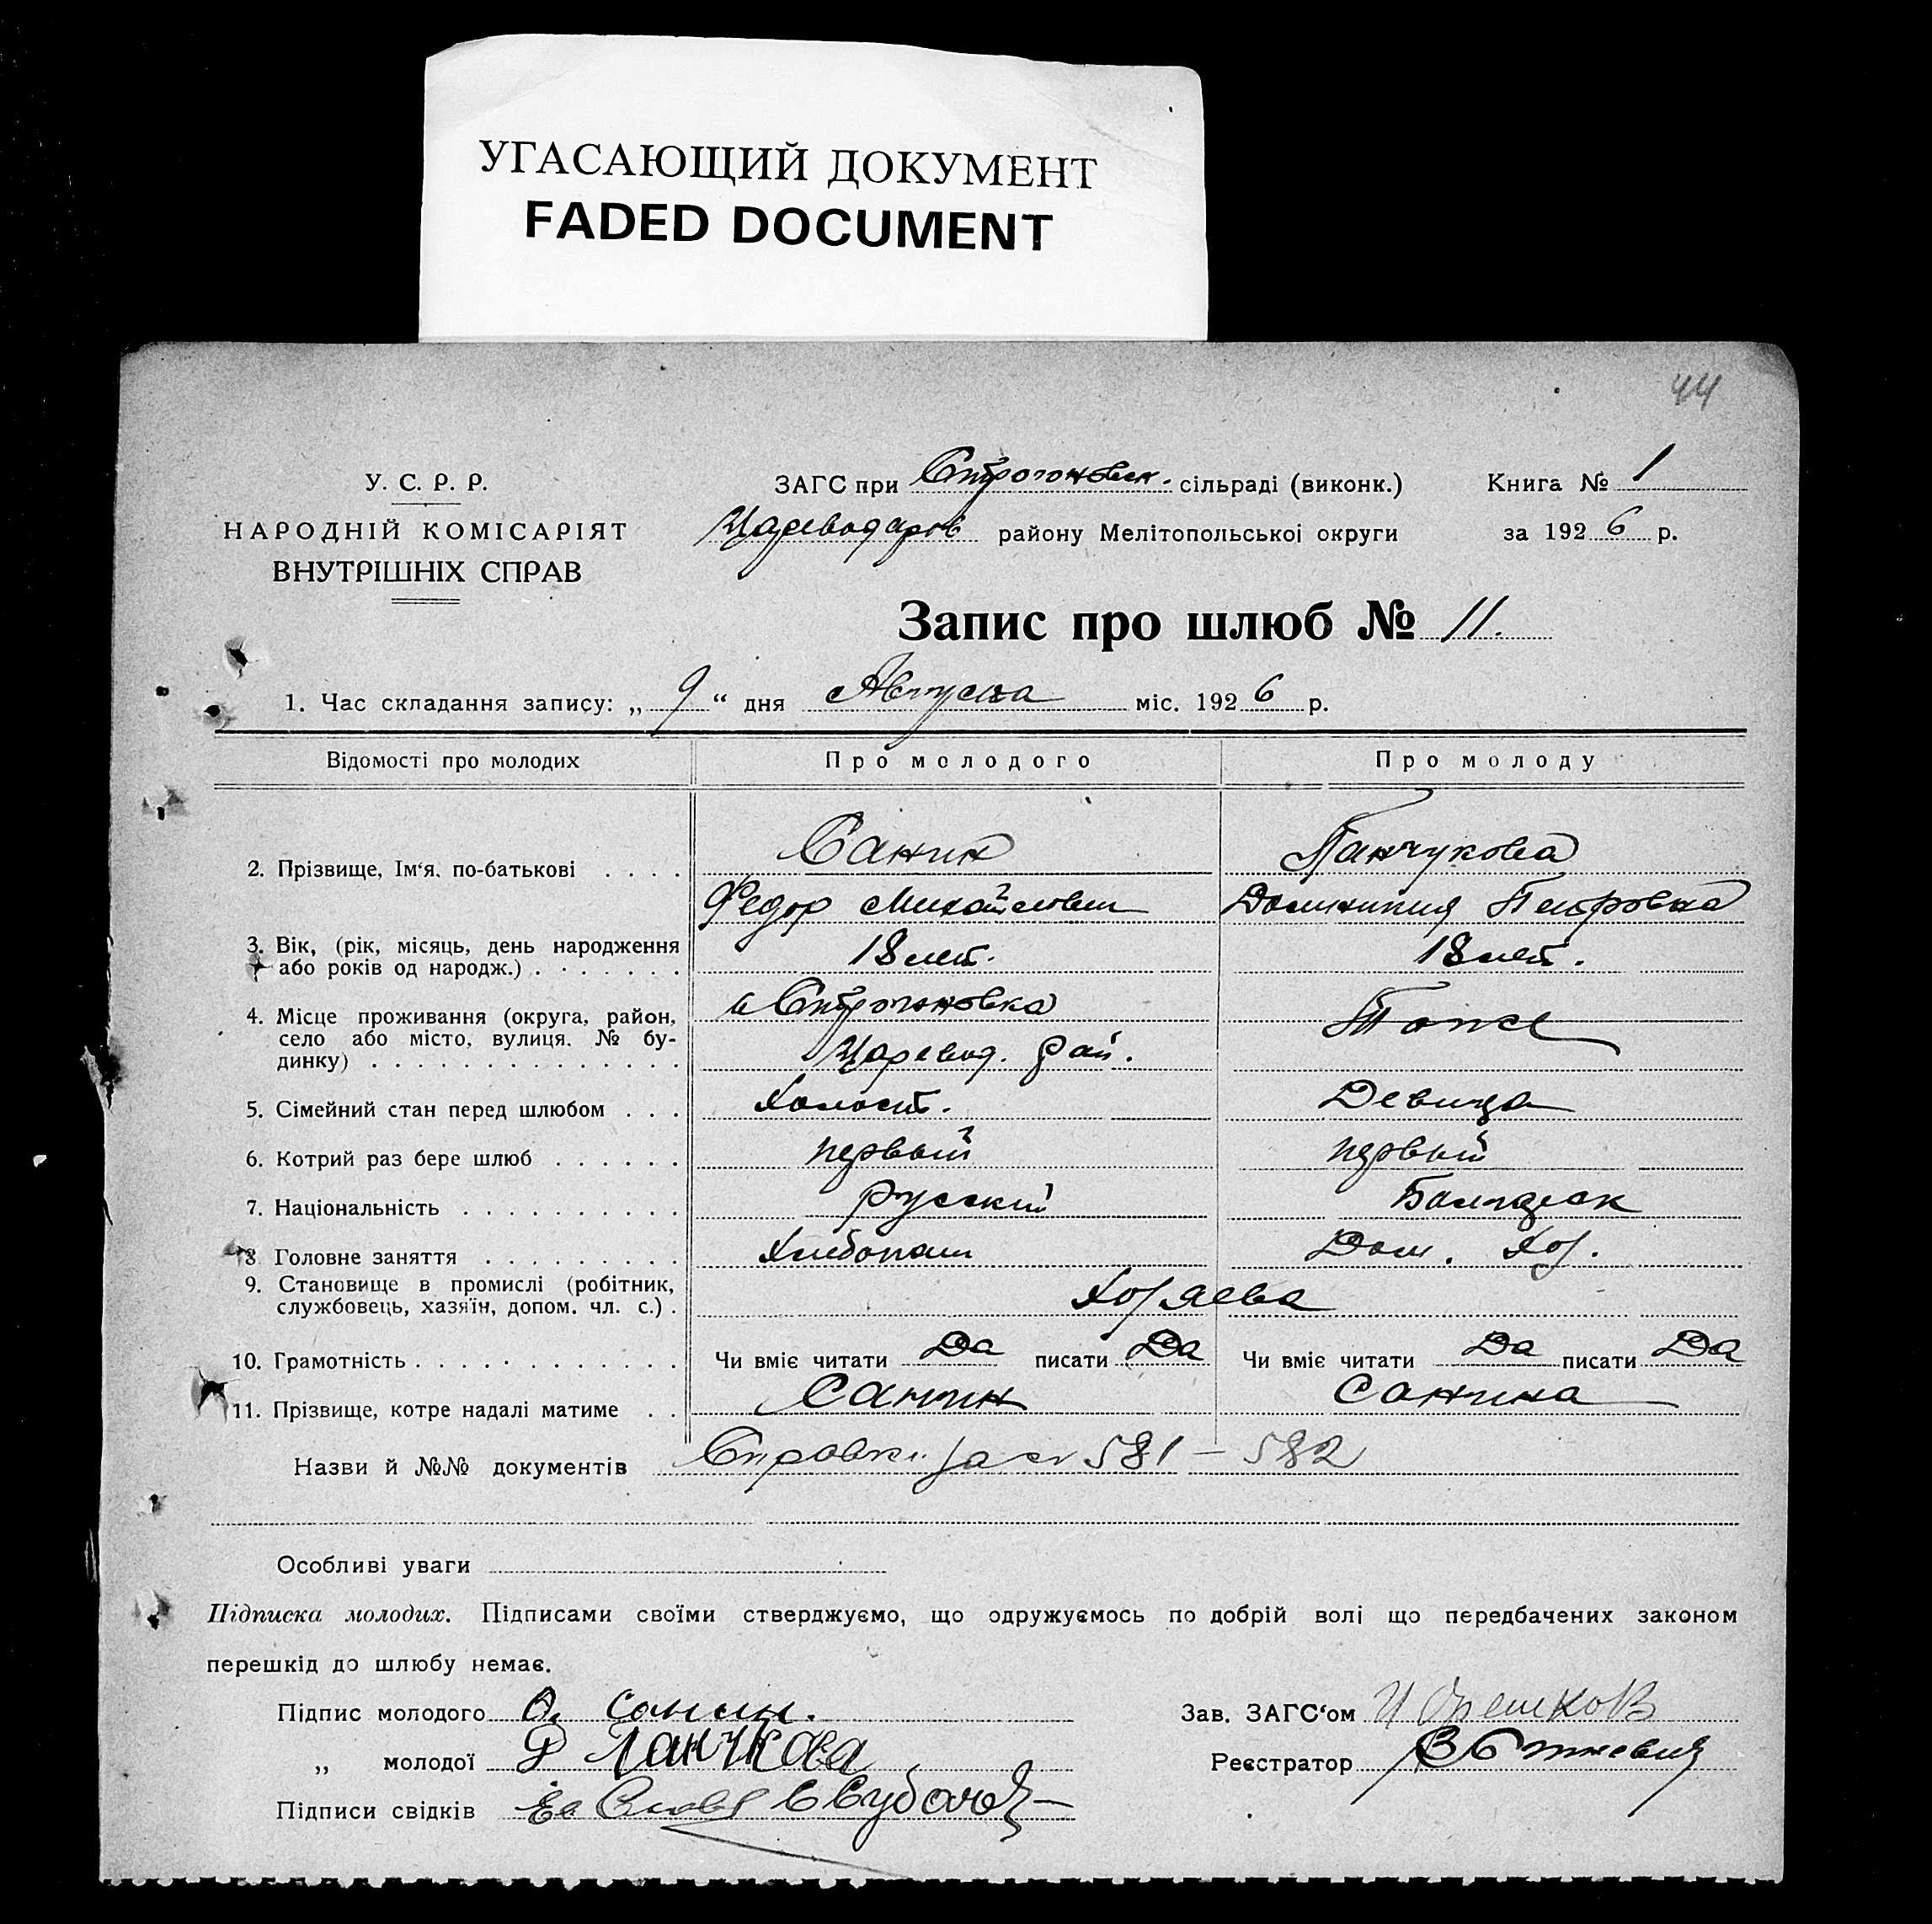 УГАСАЮЩИЙ ДОКУМЕНТ
FADED DOCUMENT
44
У. С. Р. Р.
НАРОДНІЙ КОМІСАРІЯТ
ВНУТРІШНІХ СПРАВ
ЗАГС при Строгоновск. сільраді (виконк.)
Цареводаров району Мелітопольської округи
Книга № 1
за 1926 р.
Запис про шлюб № 11.
1. Час складання запису: „ 9 “ дня Августа міс. 1926 р.
Відомості про молодих Про молодого Про молоду
2. Прізвище, Ім‘я, по-батькові . . . . Санин Панчукова
Федор Михайлович Домникия Петровна
3. Вік, (рік, місяць, день народження або років од народж.) . . . . . . . 18 лет. 18 лет.
4. Місце проживання (округа, район, село або місто, вулиця, № будинку) . . . . . . . . . . . . . . с Строгоновка Тоже
Царевод. рай.
5. Сімейний стан перед шлюбом . . . Холост. Девица
6. Котрий раз бере шлюб . . . . . . первый первый
7. Національність . . . . . . . . . . русский
8 Головне заняття . . . . . . . . . Хлебопаш Дом. Хоз.
9. Становище в промислі (робітник, службовець, хазяїн, допом. чл. с.) . Хозяева
10. Грамотність . . . . . . . . . . . . . Чи вміє читати Да писати Да Чи вміє читати Да писати Да
11. Прізвище, котре надалі матиме . . Санин Санина
Назви й №№ документів Справки за № 581 – 582
Особливі уваги
Підписка молодих. Підписами своїми стверджуємо, що одружуємось по добрій волі що передбачених законом
перешкід до шлюбу немає.
Підпис молодого Ф. Санин.
„ молодої Д Панчкова
Підписи свідків
Зав. ЗАГС‘ом И Орешков
Реєстратор